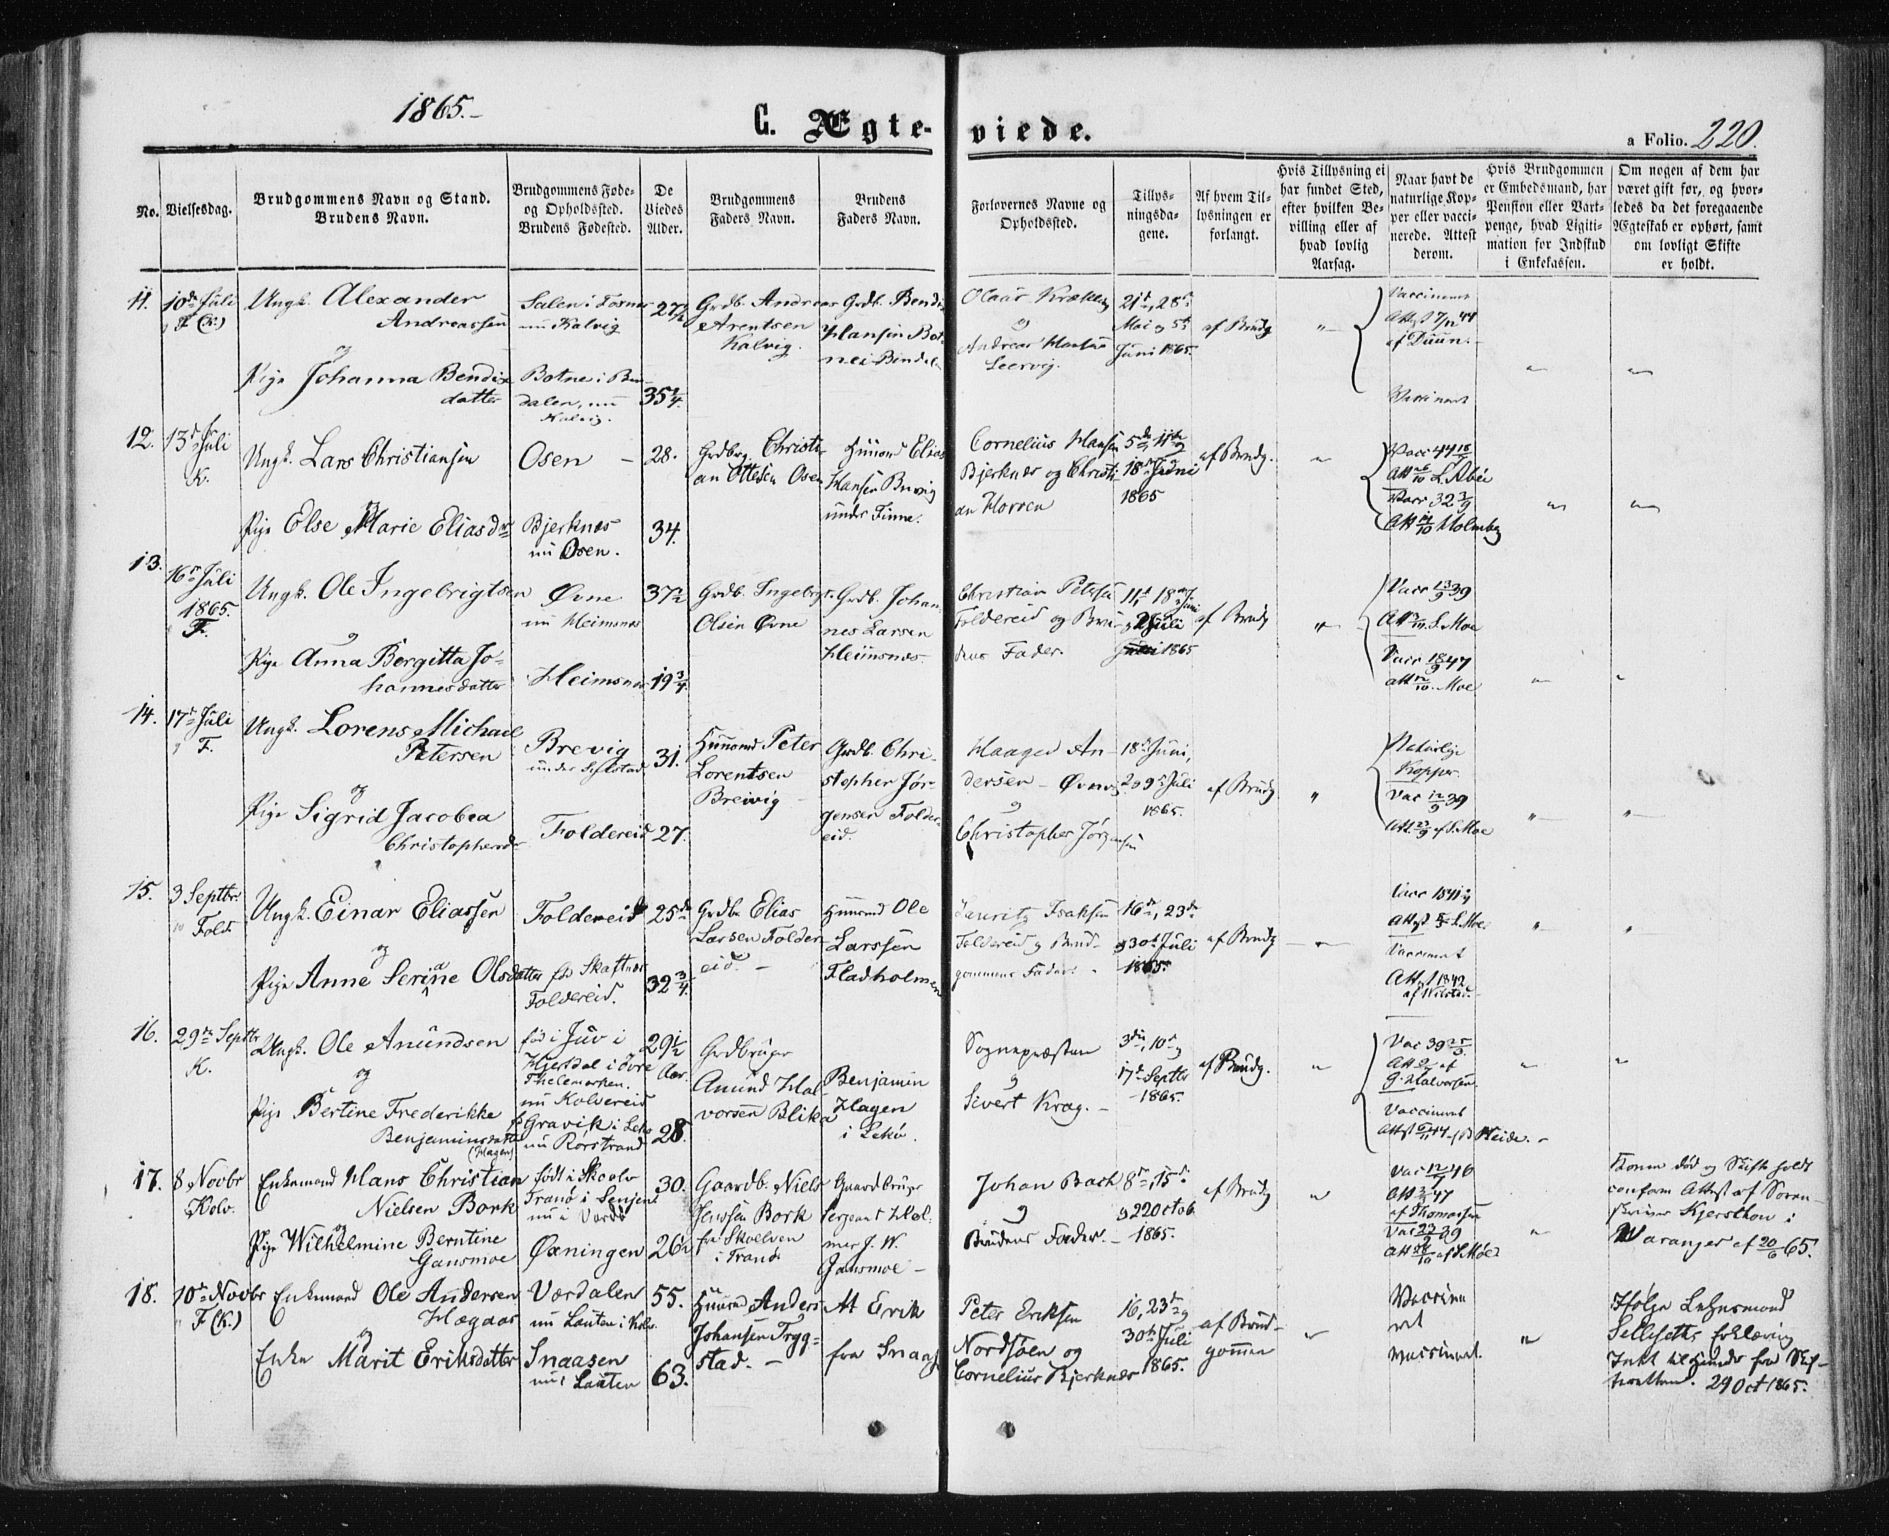 1865.-
C. Ægte-
viede.
a Folio. 220.
No.
Vielsesdag.
Brudgommens Navn og Stand.
Brudens Navn.
Brudgommens Føde-
og Opholdssted.
Brudens Fødested.
De
Viedes
Alder.
Brudgommens
Faders Navn.
Brudens
Faders Navn.
Forlovernes Navne og
Opholdssted.
Tillys-
ningsda-
gene.
Af hvem Til-
lysningen er
forlangt.
Hvis Tillysning ei
har fundet Sted,
efter hvilken Be-
villing eller af
hvad lovlig
Aarsag.
Naar havt de
naturlige Kop-
per eller vacci-
nerede. Attest
derom.
Hvis Brudgommen
er Embedsmand, har
Pension eller Vart-
penge, hvad Ligiti-
mation for Indskud
i Enkekassen.
Om nogen af dem har
været gift før, og hvor-
ledes da det foregaaende
Ægteskab er ophørt, samt
om lovligt Skifte
er holdt.
11.
10de Juli
F (K.)
Ungk. Alexander
Andreassen
og
Pige Johanna Bendix
datter
Salen i Fosnes
nu Kalvig
Botne i Bin-
dalen, nu
Kalvig.
27½
35¼.
Grdb. Andreas
Arentsen
Kalvig.
Grdb. Bendix
Hansen Bot-
nei Bindalen
Olaus
og
Andreas Hansen
Leervig.
21de, 28de
Mai og 5te
Juni 1865.
af Brudg
Vaccineret
Attest 7/12 44
af Duun.
Vaccineret
12.
13de Juli
K.
Ungk. Lars Christiansen
og
Pige Else Marie Eliasdr
Osen -
Bjerknæs
nu Osen.
28.
34.
Grdbrg. Christi-
an Ottesen Osen
Huusmd Elias
Hansen Brevig
under Finne.
Cornelius Hansen
Bjerknæs og Christi-
an Horsen
5te 11te og
18de Juni
1865
af Brudg.
Vacc 44
Att 26/10 L. Abel
Vacc 32 3/9
Att 14/10 Holmberg
13.
16de Juli
1865.
F.
Ungk. Ole Ingebrigtsen
og
Pige Anna Bergitta Jo-
hannesdatter
Øvne
nu Heimsnæs
Heimsnæs
37½
19¾.
Grdb. Ingebrigt
Olsen Øvne
Grdb. Johan-
nes Larsen
Heimsnæs.
Christian Petersen
Foldereid og Bru-
dens Fader.
11te 18de Juni
og 2 Juli
1865
af Brudg
Vacc 13/9 39
Att S. Moe
Vacc 18/9 47
att 12/10. Moe
14.
17de Juli
F.
Ungk. Lorens Michael
Petersen
og
Pige Sigrid Jacobea
Christophersdr
Brevig
under
Foldereid
31.
27.
Huusmd Peter
Lorentsen
Breivig
Grdb. Chri-
stopher Jør-
gensen Folder-
eid.
Haagen An-
dersen - Øvne
og
Christopher Jørgensen
18de Juni,
2 og 9de Juli
1865.
af Brudg
Naturlige
Kopper.
Vac 12/9 39
Att. 23/9 af S. Moe
15.
3 Septbr.
Fold.
Ungk. Einar Eliassen
og
Pige Anne Serine Olsdatter
Foldereid
fød Skaftnæs
Foldereid.
25de
32¾.
Grdbr Elias
Larsen Folder-
eid. -
Huusmd Ole
Larssen
Fladholmen
Lauritz Isaksen
Foldereid og Brud-
gommens Fader.
16de, 23de
og 30te Juli
1865.
af Brudg
Vacc 1841
Attest S. Moe.
Vaccineret
Att. 1842
16.
29de Septbr
K.
Ungk. Ole Amundsen
og
Pige Bertine Frederikke
Benjaminsdatter
(Hagen)
fød i Juv i
Hjertdal i Øvre
Thelemarken.
nu Kolvereid
Gravik i Lekø
nu Rørstrand
29½
Aar.
28.
Grdbruger
Amund Hal-
vorsen Blika
Benjamin
Hagen
i Lekø.
Sognepræsten
og
Sivert Krog. -
3die, 10de og
17de Septbr
1865.
af Brudg.
Vac 39 25/3.
Att af
G. Halvorsen.
Vaccineret
Attest af Heide. -
17.
8 Novbr
Kolv.
Enkemand Hans Christian
Nielsen Bork
og
Pige Wilhelmine Berntine
Gansmoe
født i Skoelv
Tranø i Senjen
nu i Vardø
Øxningen
30.
26½
Gaardb. Niels
Jenssen Bork
fra Skoelven
i Tranø
Gaardbruger
Sergeant Hel-
mer J. W.
Gansmoe -
Johan Bach
og
Brudens Fader. -
8de, 15de
og 22 Octob.
1865.
af Brudg
Vac 12/7 46
Att 47
af Thomassen
Vac 23/9 39
Att af S. Moe
Konen død og Skifte holdt
conform Attest af Soren-
skriver Kjerschow i
Varanger af 20/6 65.
18.
10de Novbr
F (K.)
Enkemand Ole Andersen
Hægaas
og
Enke Marit Eriksdatter
Værdalen
nu Lauten i Kolv.
Snaasen
nu Lauten
55.
63.
Huusmd Anders
Johansen Trygg-
stad. -
At Erik
fra Snaase
Peter Eriksen
Nordsøen og
Cornelius Bjerknæs
16, 23de og
30te Juli
1865.
af Brud-
gommen
Vaccine
ret
vaccineret.
Ifølge Lensmand
Selliseths Erklæring
29 Oct 1865.